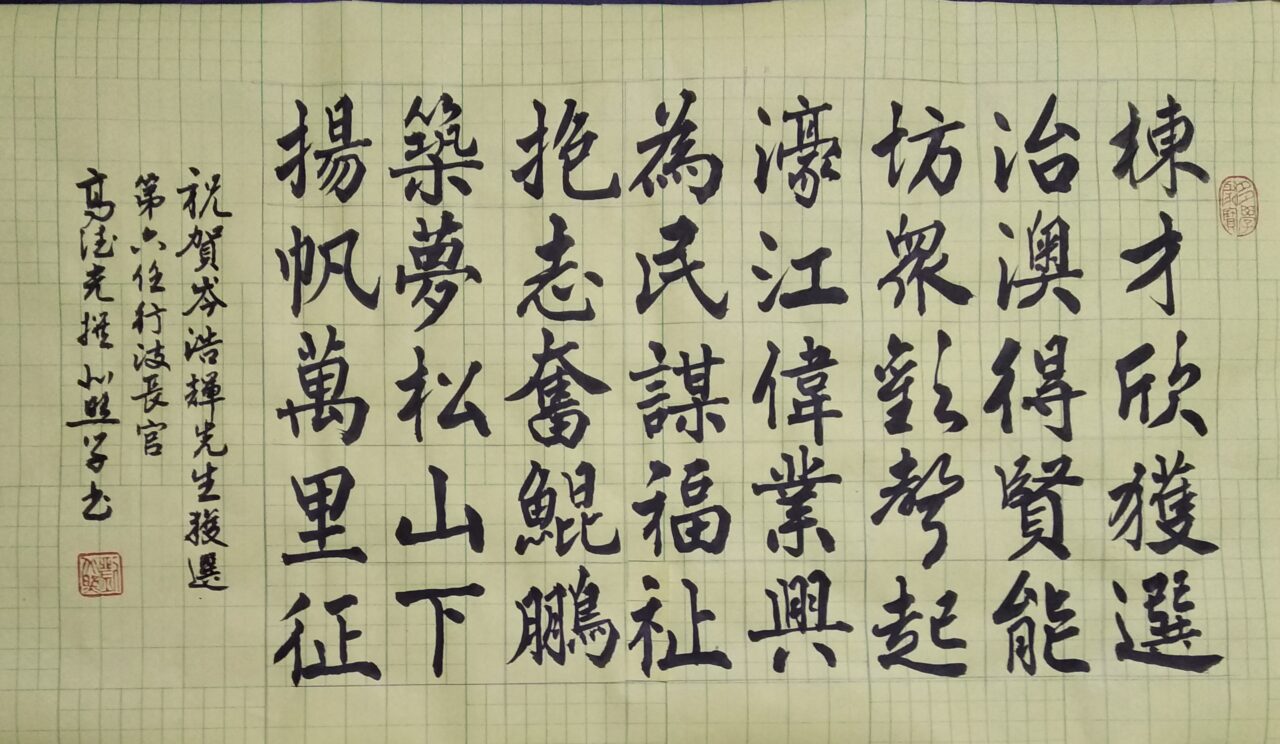 棟才欣獲選
治澳得賢能
坊衆歡聲起
濠江偉業興
為民謀福祉
抱志奮鯤鵬
築夢松山下
揚帆萬里征
祝賀岑浩輝先生獲選
第六任行政長官
高德光撰 北照學書